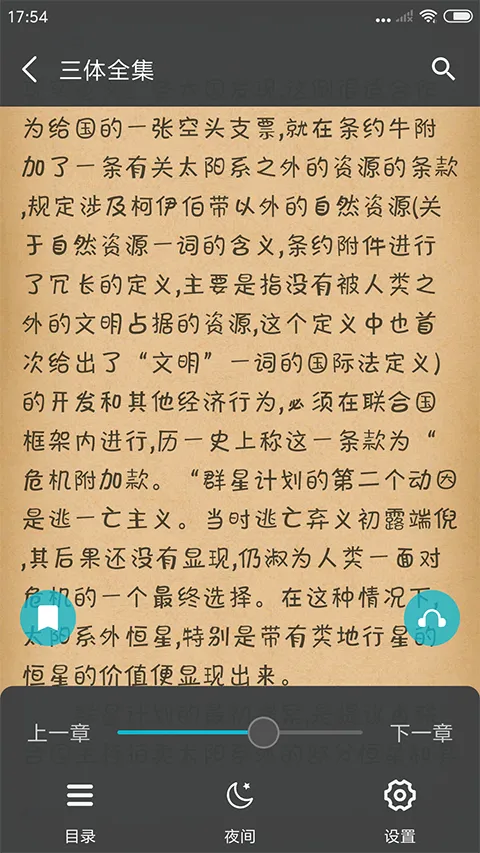 17:54
三体全集
为给国的一张空头支票,就在条约牛附
加了一条有关太阳系之外的资源的条款
,规定涉及柯伊伯带以外的自然资源(关
于自然资源一词的含义,条约附件进行
了冗长的定义,主要是指没有被人类之
外的文明占据的资源,这个定义中也首
次给出了“文明”一词的国际法定义)
的开发和其他经济行为,必须在联合国
框架内进行,历一史上称这一条款为“
危机附加款。“群星计划的第二个动因
是逃一亡主义。当时逃亡弃义初露端倪
,其后果还没有显现,仍淑为人类一面对
危机的一个最终选择。在这种情况下,
太阳系外恒星,特别是带有类地行星的
恒星的价值便显现出来。
上一章
下一章
目录
夜间
设置